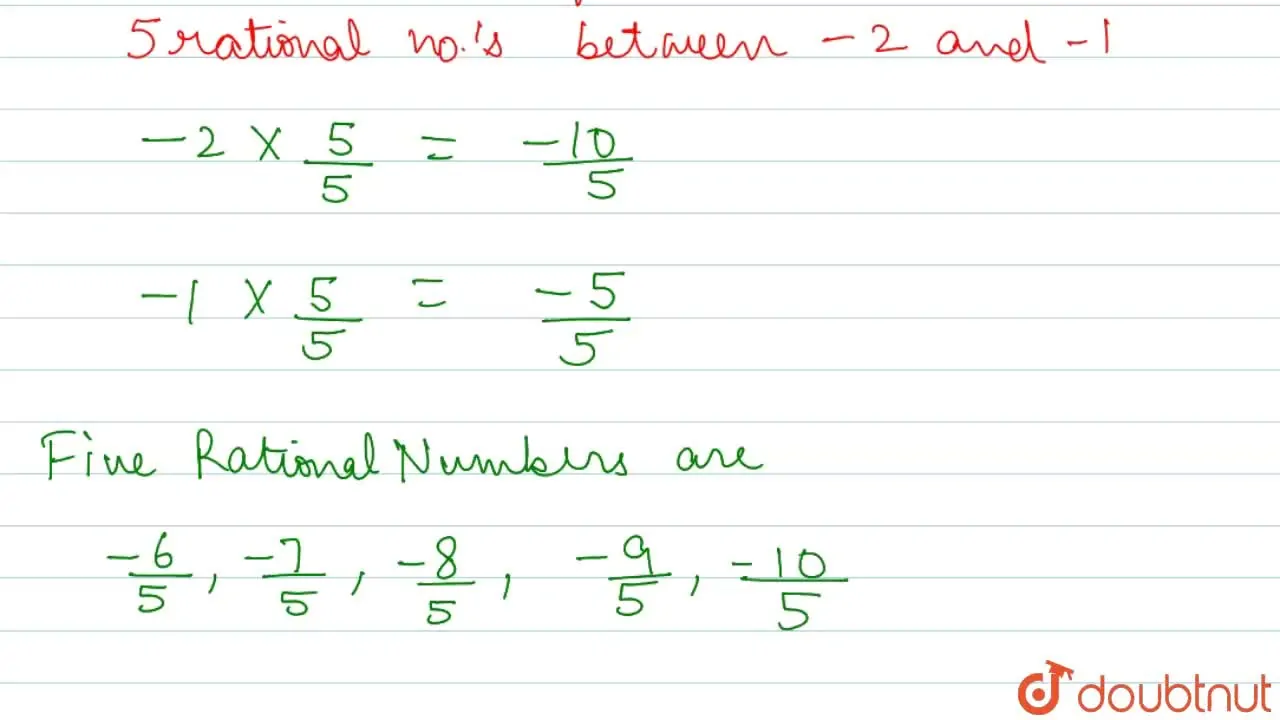 5 rational no.'s between -2 and -1
-2 × 5/5 = -10/5
-1 × 5/5 = -5/5
Five Rational Numbers are
-6/5, -7/5, -8/5, -9/5, -10/5
doubtnut